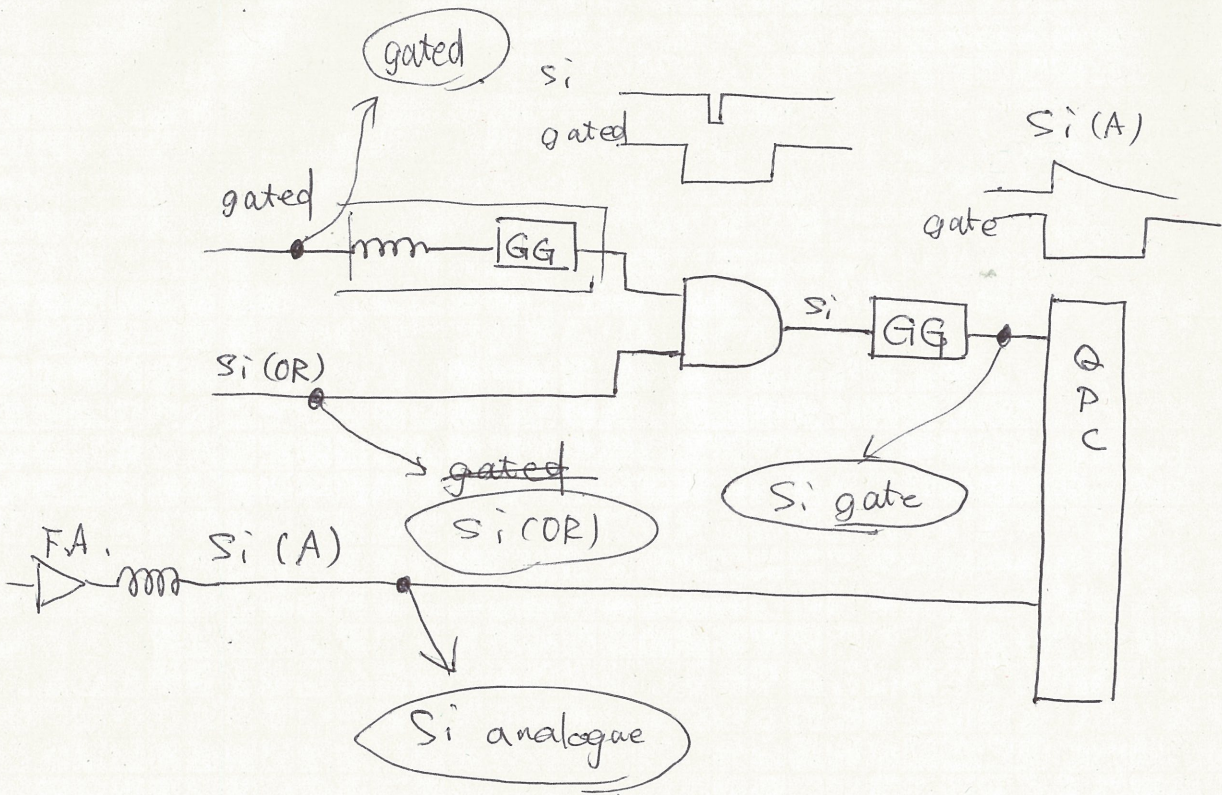 gated
Si
gated
Si (A)
gate
gated
GG
Si
GG
Si (OR)
gated
Si (OR)
Si gate
Q
D
C
F.A.
Si (A)
Si analogue